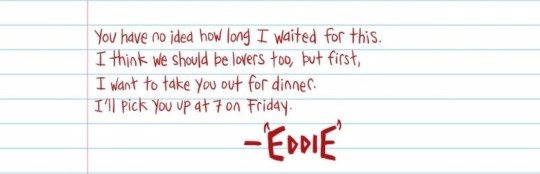 You have no idea how long I waited for this.
I think we should be lovers too, but first,
I want to take you out for dinner.
I'll pick you up at 7 on Friday.
-"EDDIE"